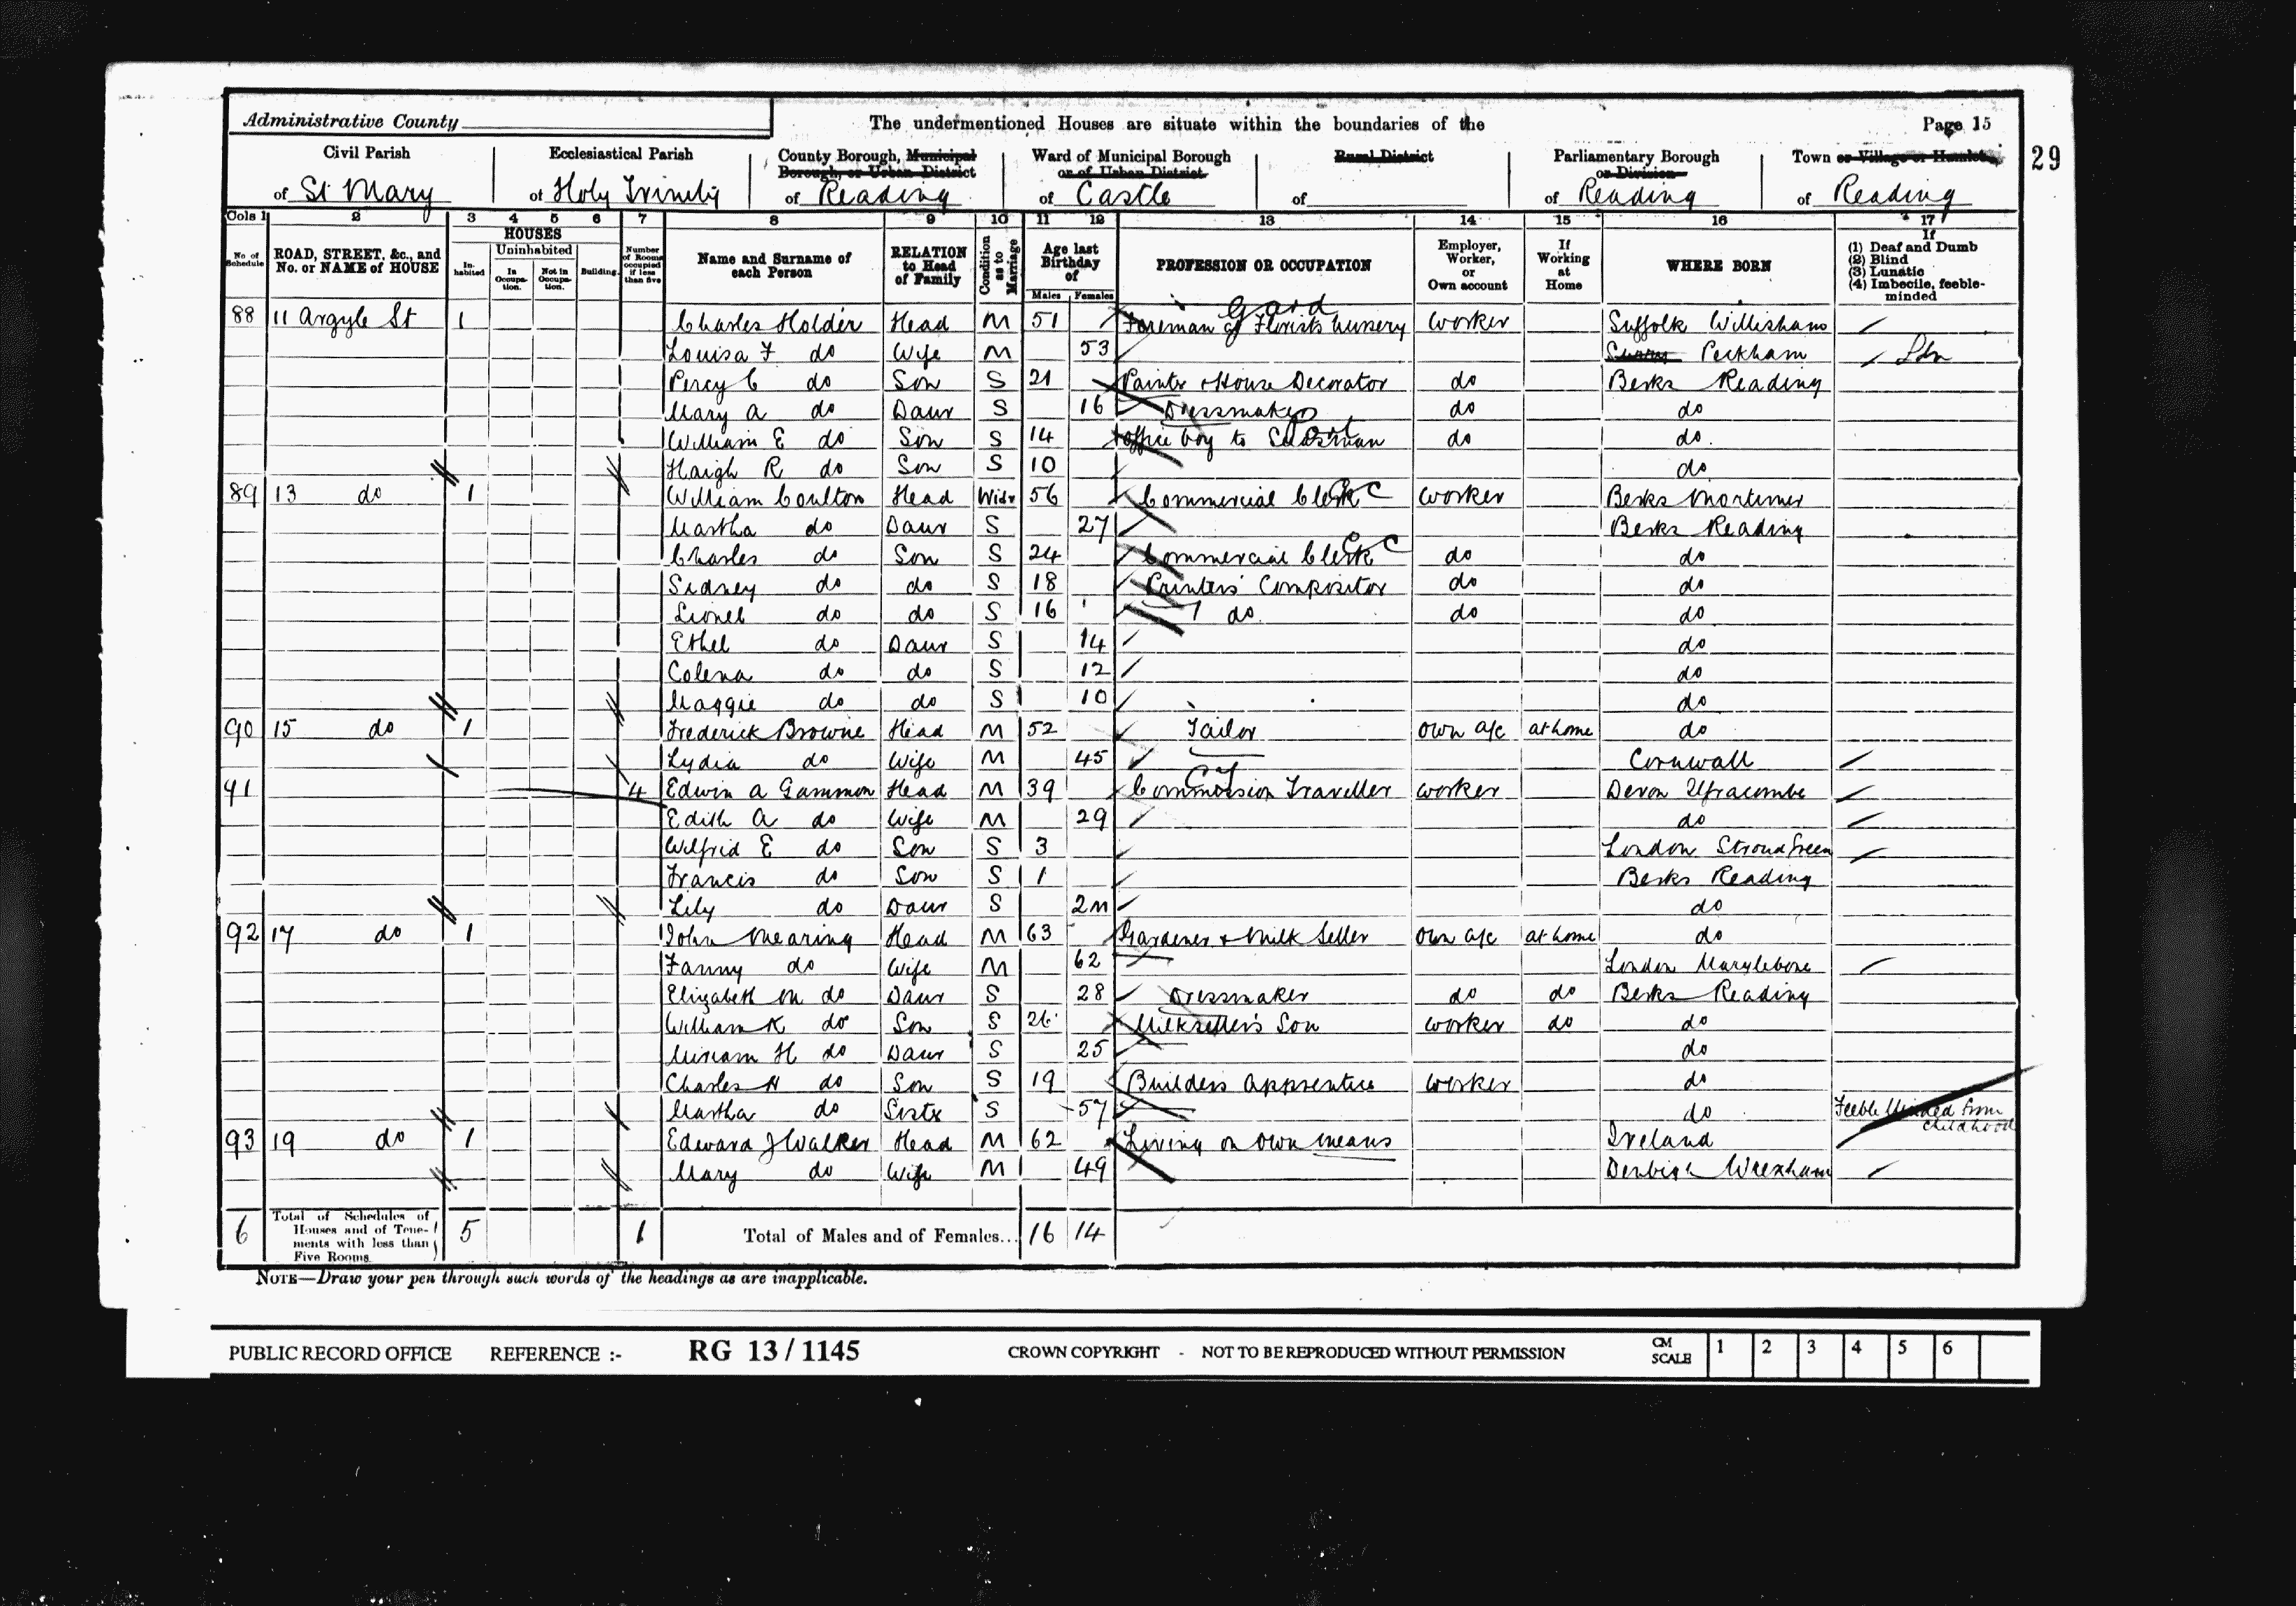 Administrative County
The undermentioned Houses are situate within the boundaries of the
Page 15
29
Civil Parish of St Mary
Ecclesiastical Parish of Holy Trinity
County Borough, Municipal Borough, or Urban District of Reading
Ward of Municipal Borough or of Urban District of Castle
Rural District of
Parliamentary Borough or Division of Reading
Town or Village or Hamlet of Reading
Cols 1 2 3 4 5 6 7 8 9 10 11 12 13 14 15 16 17
No. of Schedule
ROAD, STREET, &c., and No. or NAME of HOUSE
HOUSES
Inhabited
Uninhabited
In Occupation.
Not in Occupation.
Building.
Number of Rooms occupied if less than five
Name and Surname of each Person
RELATION to Head of Family
Condition as to Marriage
Age last Birthday of
Males Females
PROFESSION OR OCCUPATION
Employer, Worker, or Own account
If Working at Home
WHERE BORN
If
(1) Deaf and Dumb
(2) Blind
(3) Lunatic
(4) Imbecile, feeble-minded
Gard
88 11 Argyle St 1 Charles Holder Head M 51 Foreman of Florists Nursery Worker Suffolk Willisham
Louisa F do Wife M 53 Peckham Ldn
Percy C do Son S 21 Painter & House Decorator do Berks Reading
Mary A do Daur S 16 Dressmaker do do
William E do Son S 14 Office boy to do do
Haigh R do Son S 10 do
89 13 do 1 William Coulton Head Widr 56 Commercial Clerk C Worker Berks Mortimer
Martha do Daur S 27 Berks Reading
Charles do Son S 24 Commercial Clerk C do do
Sidney do do S 18 Printers' Compositor do do
Lionel do do S 16 do do do
Ethel do Daur S 14 do
Colena do do S 12 do
Maggie do do S 10 do
90 15 do 1 Frederick Browne Head M 52 Tailor own a/c at home do
Lydia do Wife M 45 Cornwall
91 4 Edwin A Gammon Head M 39 Commission Traveller Worker Devon Ilfracombe
Edith A do Wife M 29 do
Wilfrid E do Son S 3 London Stroud Green
Francis do Son S 1 Berks Reading
Lily do Daur S 2m do
92 17 do 1 John Mearing Head M 63 Gardener & Milk Seller own a/c at home do
Fanny do Wife M 62 London Marylebone
Elizabeth M do Daur S 28 Dressmaker do do Berks Reading
William K do Son S 26 Milkseller's Son Worker do do
Miriam H do Daur S 25 do
Charles H do Son S 19 Builders Apprentice Worker do
Martha do Sister S 57 do Feeble Minded from childhood
93 19 do 1 Edward J Walker Head M 62 Living on own means Ireland
Mary do Wife M 49 Denbigh Wrexham
6 Total of Schedules of Houses and of Tenements with less than Five Rooms 5 1 Total of Males and of Females... 16 14
NOTE—Draw your pen through such words of the headings as are inapplicable.
PUBLIC RECORD OFFICE REFERENCE :- RG 13 / 1145 CROWN COPYRIGHT - NOT TO BE REPRODUCED WITHOUT PERMISSION CM SCALE 1 2 3 4 5 6